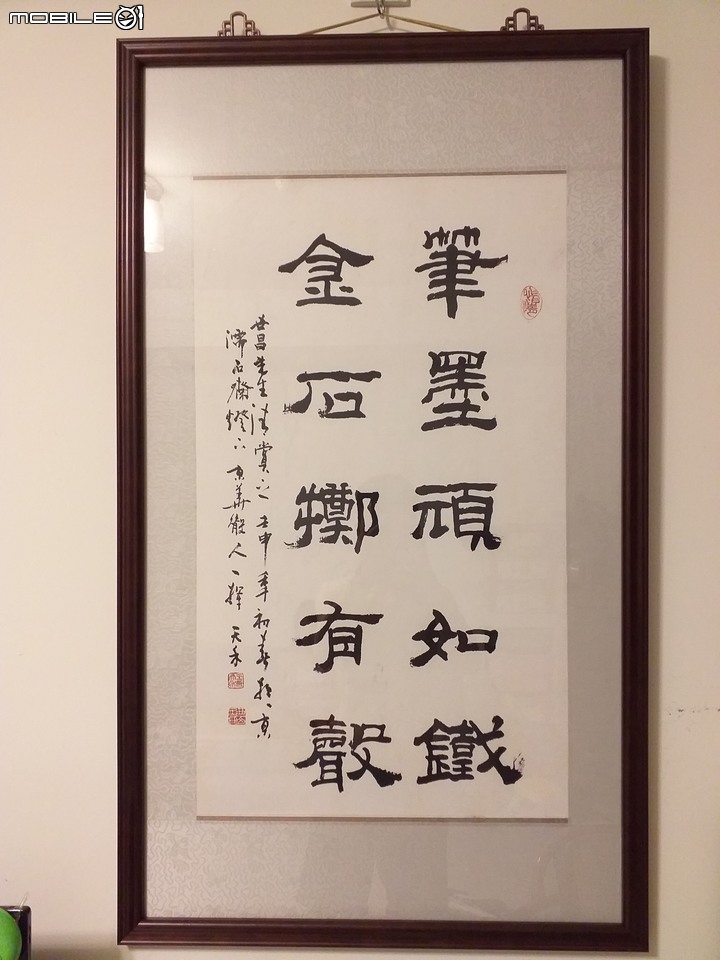 mobile01
筆墨頑如鐵
金石擲有聲
世昌先生清賞之 壬申年初春 京
濡石齋燈下 京華散人一揮 天禾